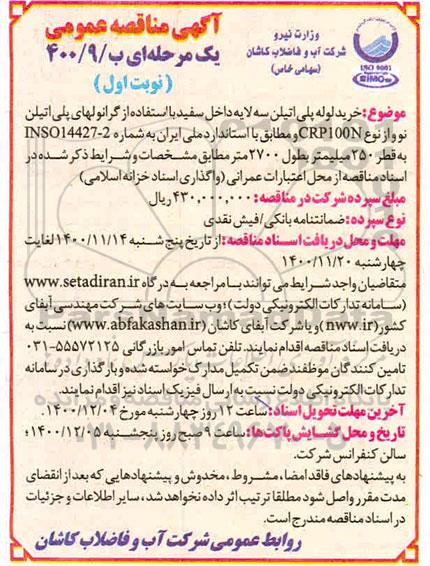 وزارت نیرو
شرکت آب و فاضلاب کاشان
(سهامی خاص)
ISO 9001
آگهی مناقصه عمومی
یک مرحله‌ای ب/۴۰۰/۹
(نوبت اول)
موضوع: خرید لوله پلی اتیلن سه لایه داخل سفید با استفاده از گرانولهای پلی اتیلن
نو و از نوع CRP100N و مطابق با استاندارد ملی ایران به شماره INSO14427-2
به قطر ۲۵۰ میلیمتر بطول ۲۷۰۰ متر مطابق مشخصات و شرایط ذکر شده در
اسناد مناقصه از محل اعتبارات عمرانی (واگذاری اسناد خزانه اسلامی)
مبلغ سپرده شرکت در مناقصه: ۴۳۰,۰۰۰,۰۰۰ ریال
نوع سپرده: ضمانتنامه بانکی/فیش نقدی
مهلت و محل دریافت اسناد مناقصه: از تاریخ پنج شنبه ۱۴۰۰/۱۱/۱۴ لغایت
چهارشنبه ۱۴۰۰/۱۱/۲۰
متقاضیان واجد شرایط می توانند با مراجعه به درگاه www.setadiran.ir
(سامانه تدارکات الکترونیکی دولت)؛ وب سایت های شرکت مهندسی آبفای
کشور (nww.ir) و یا شرکت آبفای کاشان (www.abfakashan.ir) نسبت به
دریافت اسناد مناقصه اقدام نمایند. تلفن تماس امور بازرگانی ۵۵۵۷۲۱۲۵-۰۳۱
تامین کنندگان موظفند ضمن تکمیل مدارک خواسته شده و بارگذاری در سامانه
تدارکات الکترونیکی دولت نسبت به ارسال فیزیک اسناد نیز اقدام نمایند.
آخرین مهلت تحویل اسناد: ساعت ۱۲ روز چهارشنبه مورخ ۱۴۰۰/۱۲/۰۴
تاریخ و محل گشایش پاکت‌ها: ساعت ۹ صبح روز پنجشنبه ۱۴۰۰/۱۲/۰۵؛
سالن کنفرانس شرکت.
به پیشنهادهای فاقد امضا، مشروط، مخدوش و پیشنهادهایی که بعد از انقضای
مدت مقرر واصل شود مطلقا ترتیب اثر داده نخواهد شد، سایر اطلاعات و جزئیات
در اسناد مناقصه مندرج است.
روابط عمومی شرکت آب و فاضلاب کاشان